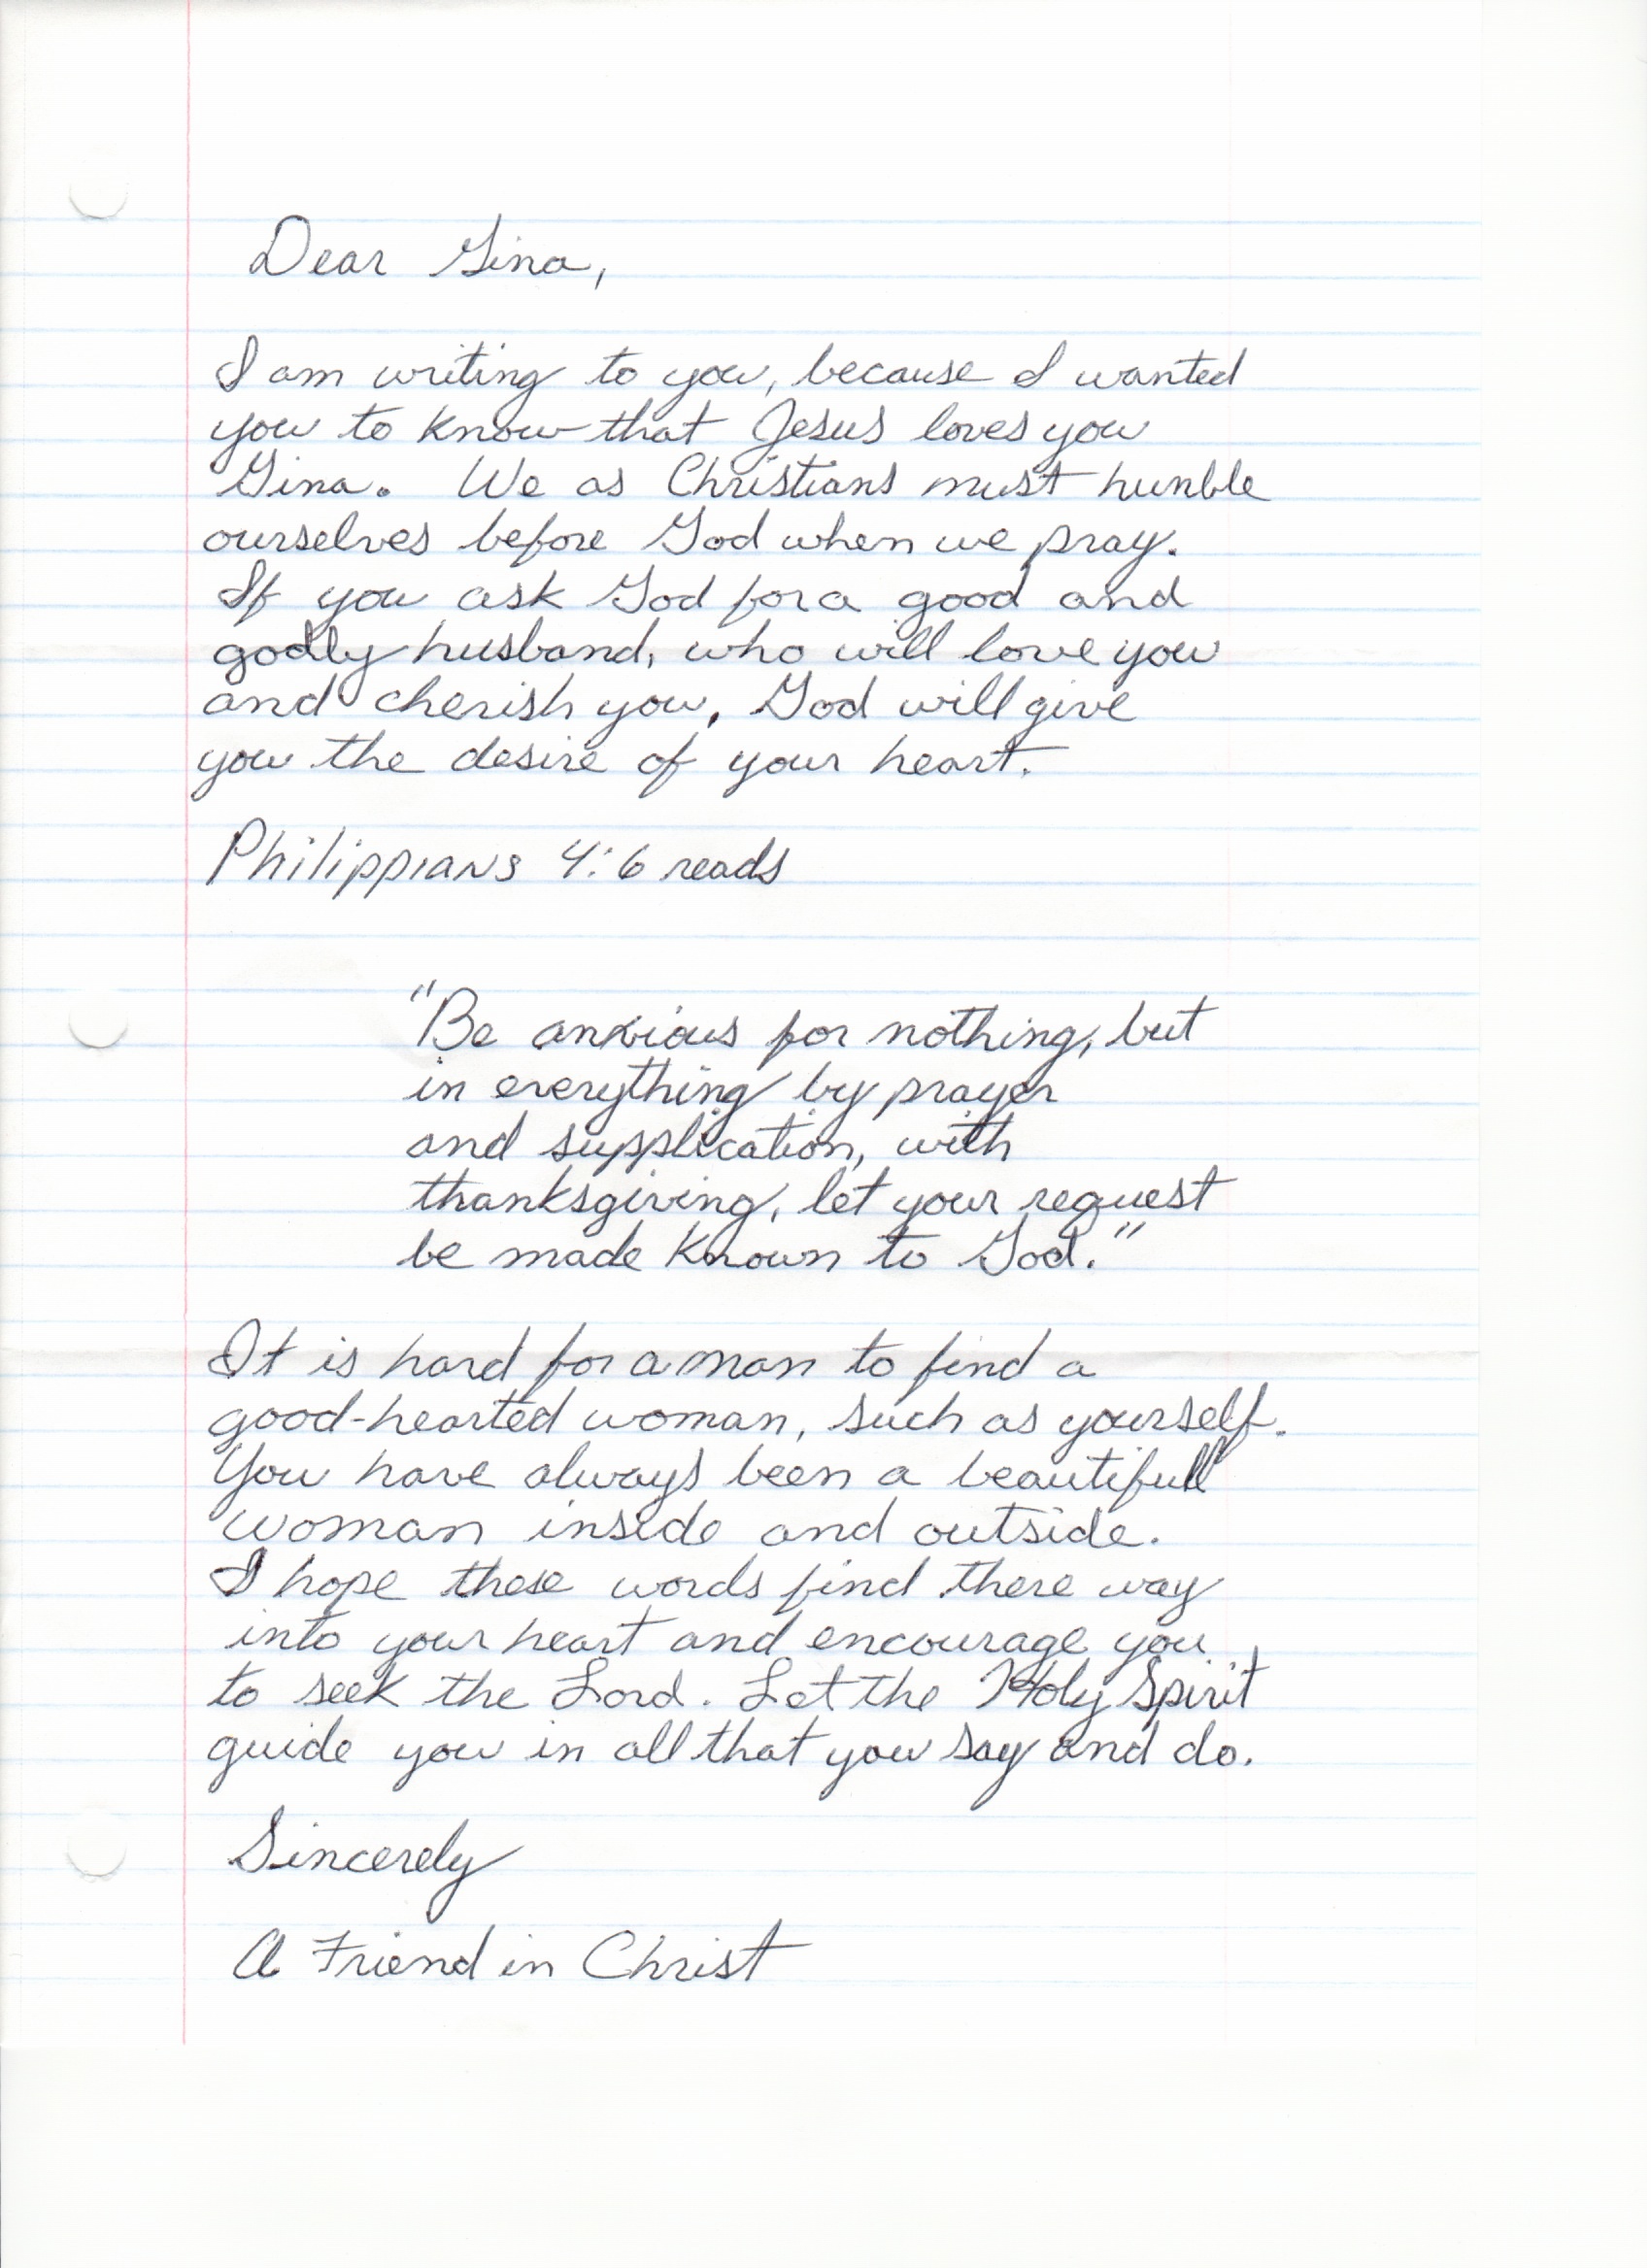 Dear Gina,
I am writing to you, because I wanted
you to know that Jesus loves you
Gina. We as Christians must humble
ourselves before God when we pray.
If you ask God for a good and
godly husband, who will love you
and cherish you, God will give
you the desire of your heart.
Philippians 4:6 reads
"Be anxious for nothing, but
in everything by prayer
and supplication, with
thanksgiving, let your request
be made known to God."
It is hard for a man to find a
good-hearted woman, such as yourself.
You have always been a beautifull
woman inside and outside.
I hope these words find there way
into your heart and encourage you
to seek the Lord. Let the Holy Spirit
guide you in all that you say and do.
Sincerely
A Friend in Christ